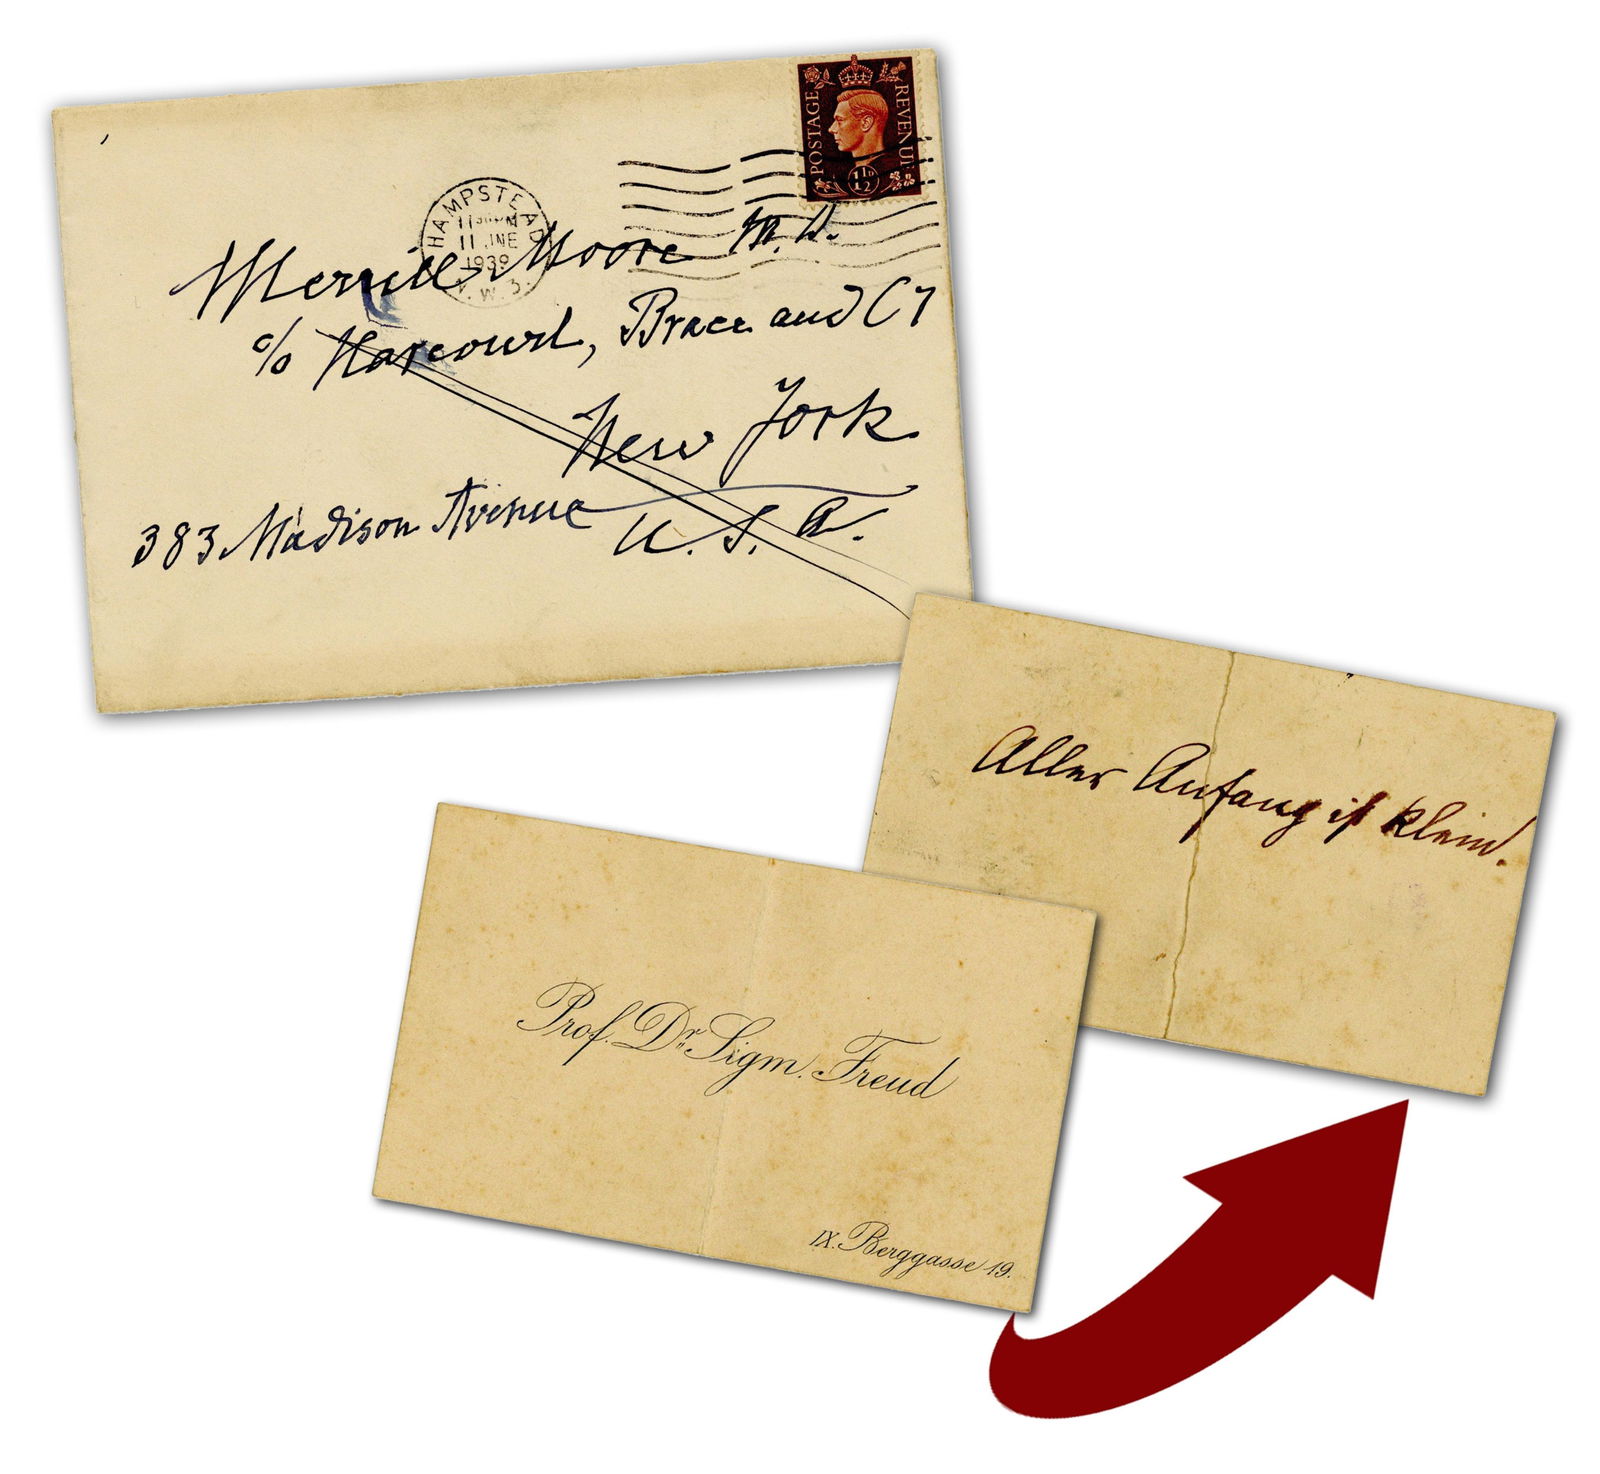 POSTAGE REVENUE
1½D
HAMPSTEAD
11 JNE
1939
N.W.3.
Merrill Moore M.D.
c/o Harcourt, Brace and Cy
New York
383 Madison Avenue
U.S.A.
Aller Anfang ist klein.
Prof. Dr. Sigm. Freud
IX. Berggasse 19.